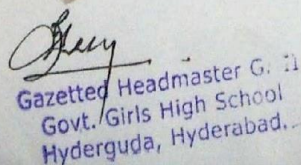 Gazetted Headmaster G. II
Govt. Girls High School
Hyderguda, Hyderabad.